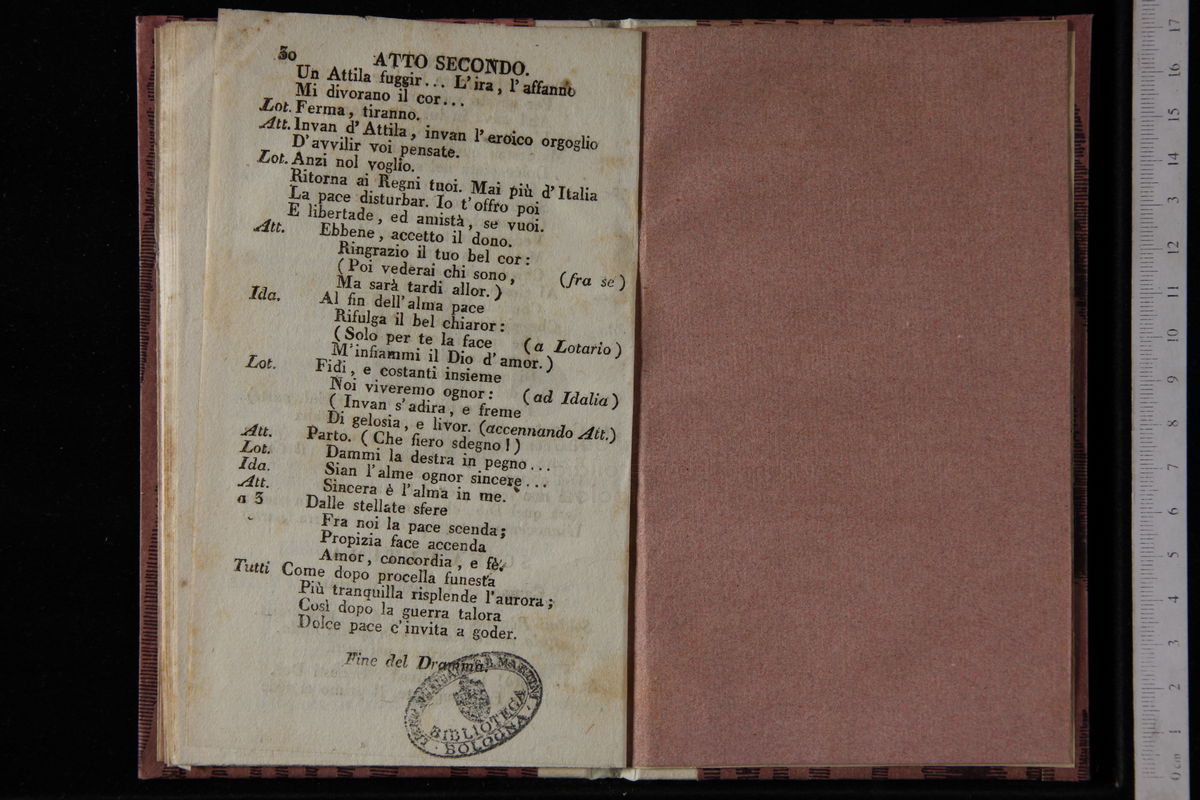 30 ATTO SECONDO.
Un Attila fuggir... L'ira, l'affanno
Mi divorano il cor...
Lot. Ferma, tiranno.
Att. Invan d'Attila, invan l'eroico orgoglio
D'avvilir voi pensate.
Lot. Anzi nol voglio.
Ritorna ai Regni tuoi. Mai più d'Italia
La pace disturbar. Io t'offro poi
E libertade, ed amistà, se vuoi.
Att. Ebbene, accetto il dono.
Ringrazio il tuo bel cor:
(Poi vederai chi sono, (fra se)
Ma sarà tardi allor.)
Ida. Al fin dell'alma pace
Rifulga il bel chiaror:
(Solo per te la face (a Lotario)
M'infiammi il Dio d'amor.)
Lot. Fidi, e costanti insieme
Noi viveremo ognor: (ad Idalia)
(Invan s'adira, e freme
Di gelosia, e livor. (accennando Att.)
Att. Parto. (Che fiero sdegno!)
Lot. Dammi la destra in pegno...
Ida. Sian l'alme ognor sincere...
Att. Sincera è l'alma in me.
a 3 Dalle stellate sfere
Fra noi la pace scenda;
Propizia face accenda
Amor, concordia, e fè.
Tutti Come dopo procella funesta
Più tranquilla risplende l'aurora;
Così dopo la guerra talora
Dolce pace c'invita a goder.
Fine del Dramma.
B. MARTINI
BIBLIOTECA
BOLOGNA
17
16
15
14
13
12
11
10
9
8
7
6
5
4
3
2
1
0 cm